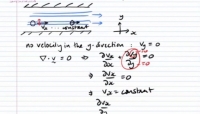 vₓ constant
y
x
no velocity in the y-direction : v_y = 0
∇·v = 0 ⇒ ∂vₓ/∂x + ∂v_y/∂y = 0
= 0
⇒ ∂vₓ/∂x = 0
⇒ vₓ = constant
∂vₓ